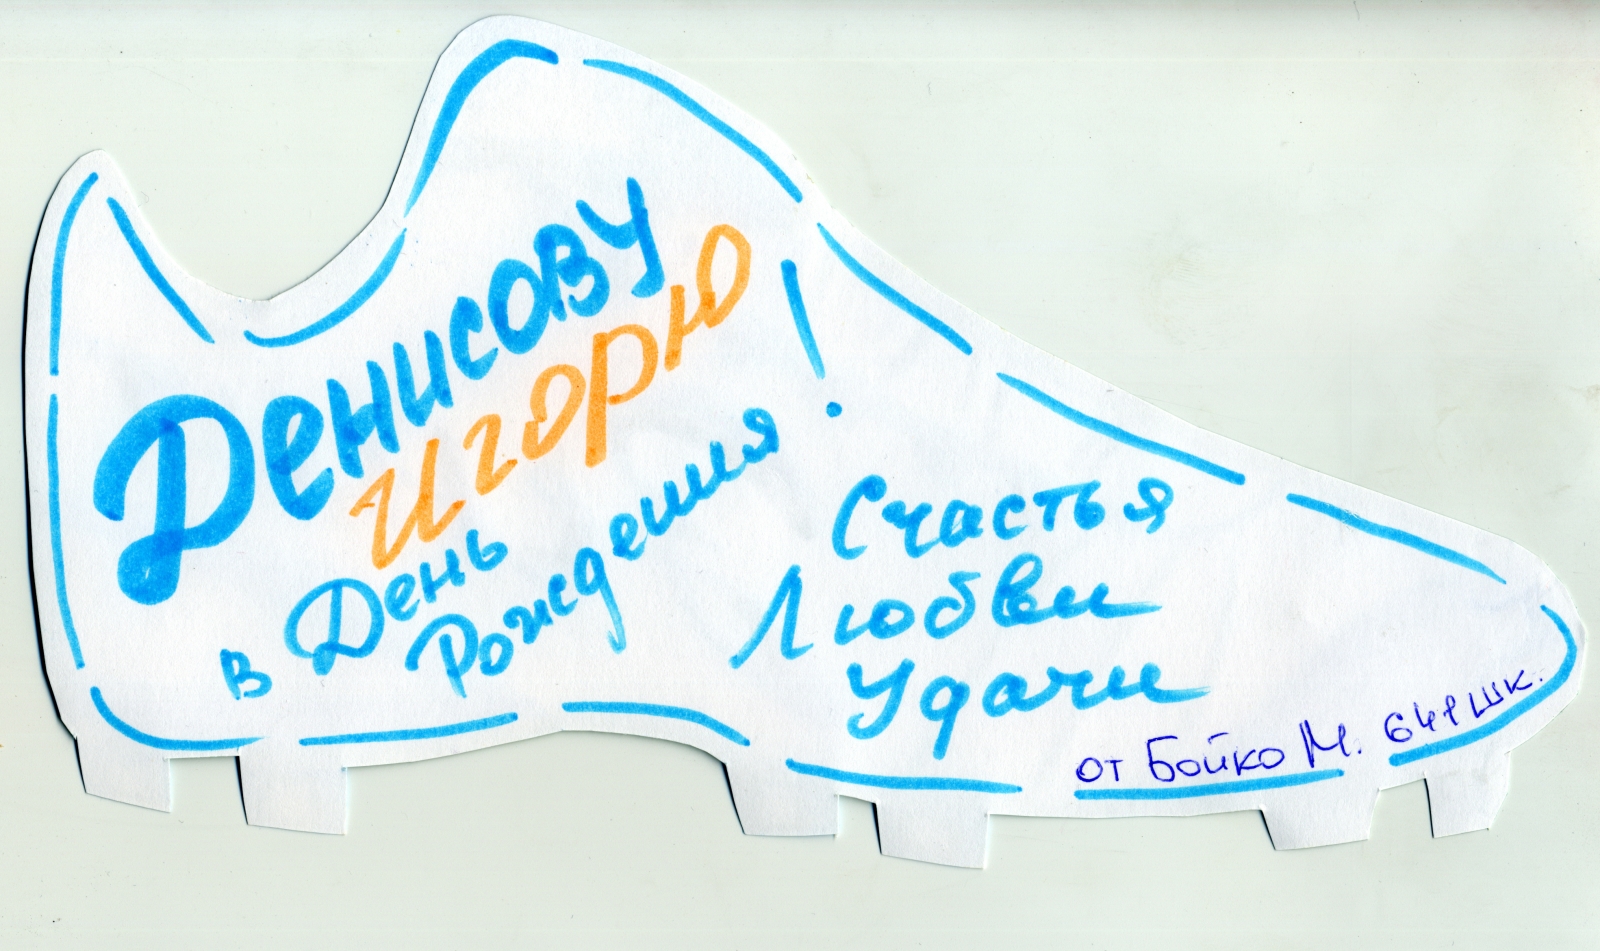 Денисову
Игорю
в День
Рождения!
Счастья
Любви
Удачи
от Бойко М. 641 шк.